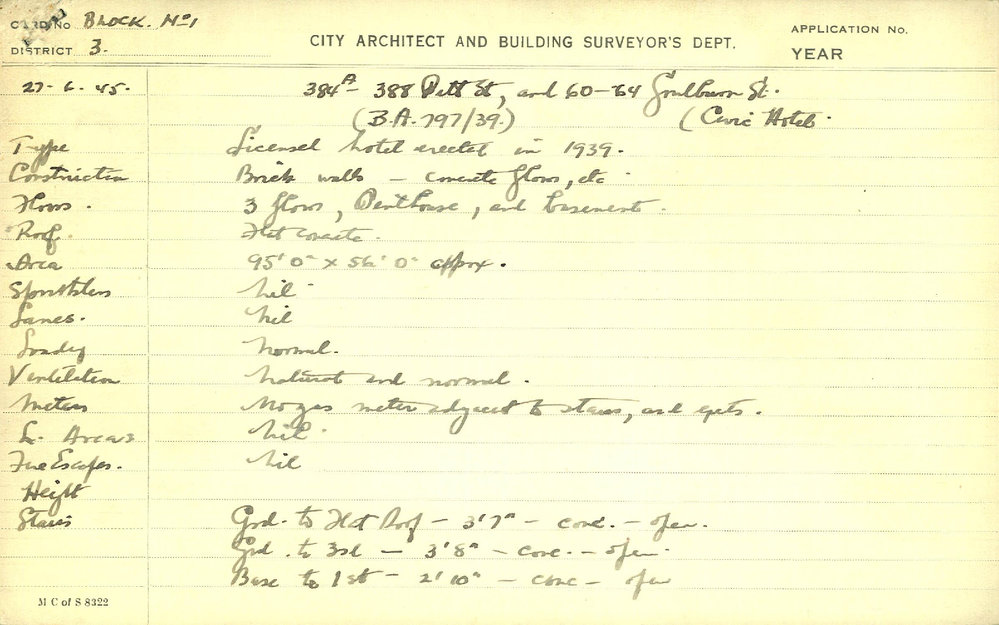 CARD NO BLOCK. No1
DISTRICT 3.
CITY ARCHITECT AND BUILDING SURVEYOR'S DEPT.
APPLICATION No.
YEAR
27-6-45. 384A- 388 Pitt St, and 60-64 Goulburn St.
(B.A. 797/39.) (Civic Hotel.
Type Licensed hotel erected in 1939.
Construction Brick walls - concrete floors, etc
Floors. 3 floors, Penthouse, and basement.
Roof. Flat concrete.
Area 95'0" x 56'0" approx.
Sprinklers Nil
Lanes. Nil
Normal.
Ventilation Natural and normal.
Meters No gas meter adjacent to stairs, and exits.
L. Areas Nil
Fire Escapes. Nil
Height
Stairs Grd. to Flat Roof - 3'7" - conc. - open.
Grd. to 3rd - 3'8" - conc. - open.
Base to 1st - 2'10" - conc - open
M C of S 8322